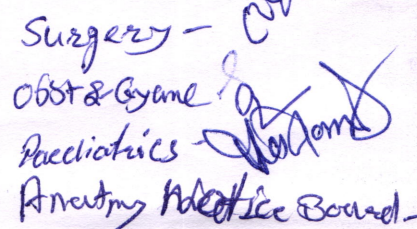 Surgery -
Obst & Gynae
Paediatrics -
Anatomy Notice Board -